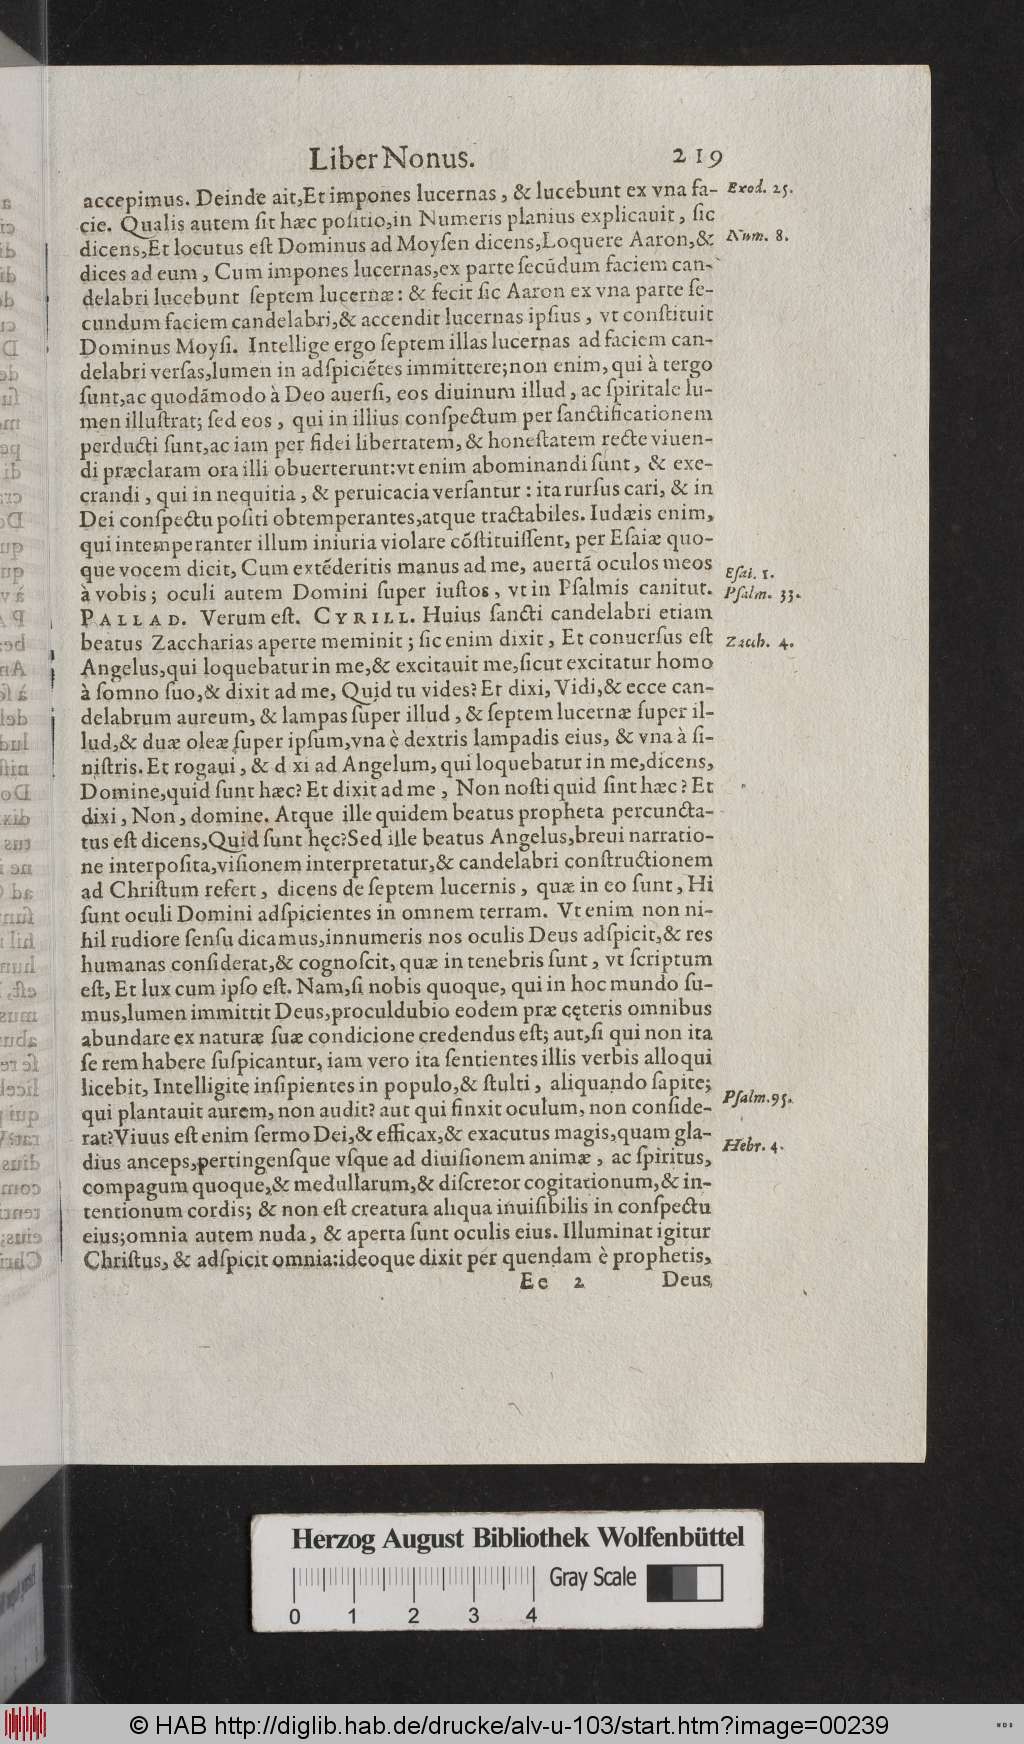 Liber Nonus. 219
accepimus. Deinde ait,Et impones lucernas, & lucebunt ex vna fa- Exod. 25.
cie. Qualis autem ſit hæc poſitio,in Numeris planius explicauit, ſic
dicens,Et locutus eſt Dominus ad Moyſen dicens,Loquere Aaron,& Num. 8.
dices ad eum, Cum impones lucernas,ex parte ſecũdum faciem can-
delabri lucebunt ſeptem lucernæ: & fecit ſic Aaron ex vna parte ſe-
cundum faciem candelabri,& accendit lucernas ipſius, vt conſtituit
Dominus Moyſi. Intellige ergo ſeptem illas lucernas ad faciem can-
delabri verſas,lumen in adſpiciẽtes immittere;non enim, qui à tergo
ſunt,ac quodãmodo à Deo auerſi, eos diuinum illud, ac ſpiritale lu-
men illuſtrat; ſed eos, qui in illius conſpectum per ſanctificationem
perducti ſunt,ac iam per fidei libertatem, & honeſtatem recte viuen-
di præclaram ora illi obuerterunt:vt enim abominandi ſunt, & exe-
crandi, qui in nequitia, & peruicacia verſantur: ita rurſus cari, & in
Dei conſpectu poſiti obtemperantes,atque tractabiles. Iudæis enim,
qui intemperanter illum iniuria violare cõſtituiſſent, per Eſaiæ quo-
que vocem dicit, Cum extẽderitis manus ad me, auertã oculos meos Eſai. 1.
à vobis; oculi autem Domini ſuper iuſtos, vt in Pſalmis canitur. Pſalm. 33.
PALLAD. Verum eſt. CYRILL. Huius ſancti candelabri etiam
beatus Zaccharias aperte meminit; ſic enim dixit, Et conuerſus eſt Zacch. 4.
Angelus,qui loquebatur in me,& excitauit me,ſicut excitatur homo
à ſomno ſuo,& dixit ad me, Quid tu vides? Et dixi, Vidi,& ecce can-
delabrum aureum, & lampas ſuper illud, & ſeptem lucernæ ſuper il-
lud,& duæ oleæ ſuper ipſum,vna è dextris lampadis eius, & vna à ſi-
niſtris. Et rogaui, & d xi ad Angelum, qui loquebatur in me,dicens,
Domine,quid ſunt hæc? Et dixit ad me, Non noſti quid ſint hæc? Et
dixi, Non, domine. Atque ille quidem beatus propheta percuncta-
tus eſt dicens,Quid ſunt hęc?Sed ille beatus Angelus,breui narratio-
ne interpoſita,viſionem interpretatur,& candelabri conſtructionem
ad Chriſtum refert, dicens de ſeptem lucernis, quæ in eo ſunt, Hi
ſunt oculi Domini adſpicientes in omnem terram. Vt enim non ni-
hil rudiore ſenſu dicamus,innumeris nos oculis Deus adſpicit,& res
humanas conſiderat,& cognoſcit, quæ in tenebris ſunt, vt ſcriptum
eſt, Et lux cum ipſo eſt. Nam,ſi nobis quoque, qui in hoc mundo ſu-
mus,lumen immittit Deus,proculdubio eodem præ cęteris omnibus
abundare ex naturæ ſuæ condicione credendus eſt; aut,ſi qui non ita
ſe rem habere ſuſpicantur, iam vero ita ſentientes illis verbis alloqui
licebit, Intelligite inſipientes in populo,& ſtulti, aliquando ſapite;
qui plantauit aurem, non audit? aut qui finxit oculum, non conſide- Pſalm.95.
rat?Viuus eſt enim ſermo Dei,& efficax,& exacutus magis,quam gla-
dius anceps,pertingenſque vſque ad diuiſionem animæ, ac ſpiritus, Hebr. 4.
compagum quoque,& medullarum,& diſcretor cogitationum,& in-
tentionum cordis; & non eſt creatura aliqua inuiſibilis in conſpectu
eius;omnia autem nuda, & aperta ſunt oculis eius. Illuminat igitur
Chriſtus, & adſpicit omnia:ideoque dixit per quendam è prophetis,
Ee 2 Deus
Herzog August Bibliothek Wolfenbüttel
Gray Scale
0 1 2 3 4
© HAB http://diglib.hab.de/drucke/alv-u-103/start.htm?image=00239